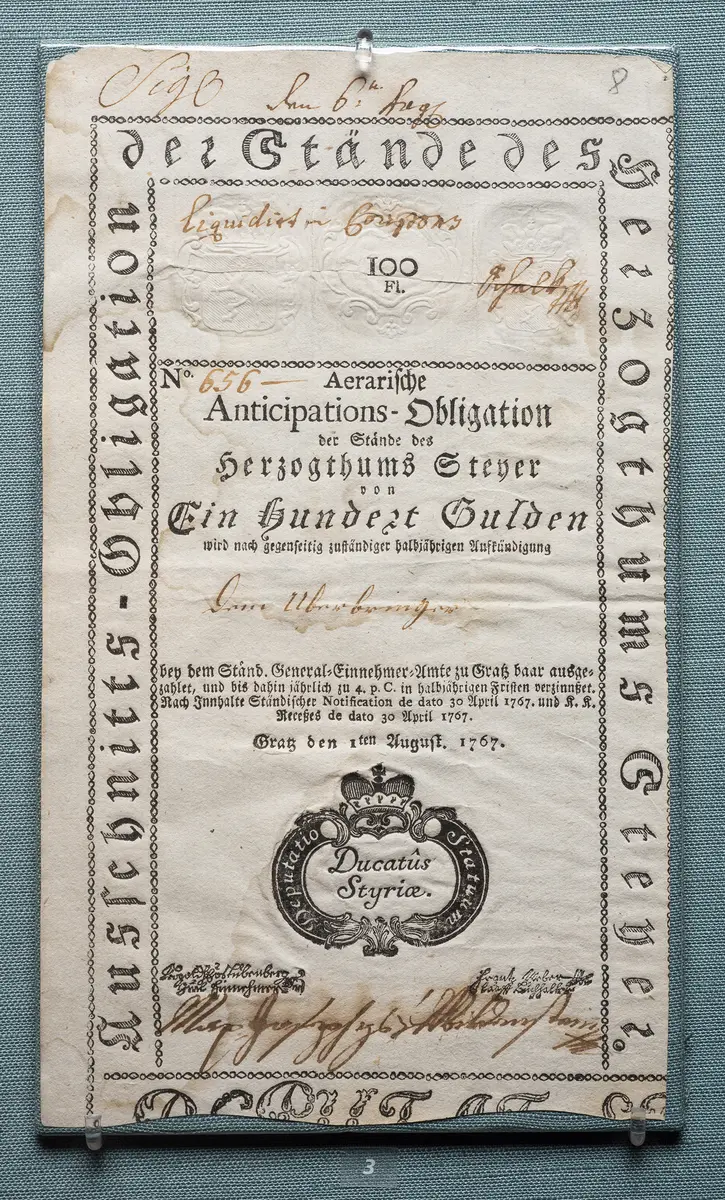 8
den 6.
der Stände des
Herzogthums Steyer.
Ausschnitts-Obligation
liquidirt in Coupons
100
Fl.
No. 656 — Aerarische
Anticipations-Obligation
der Stände des
Herzogthums Steyer
von
Ein Hundert Gulden
wird nach gegenseitig zuständiger halbjährigen Aufkündigung
dem Uberbringer
bey dem Ständ. General-Einnehmer-Amte zu Gratz baar ausge-
zahlet, und bis dahin jährlich zu 4. p. C. in halbjährigen Fristen verzinnßet.
Nach Innhalte Ständischer Notification de dato 30 April 1767. und K. K.
Receßes de dato 30 April 1767.
Gratz den 1ten August. 1767.
Deputatio Statuum
Ducatûs
Styriæ.
3